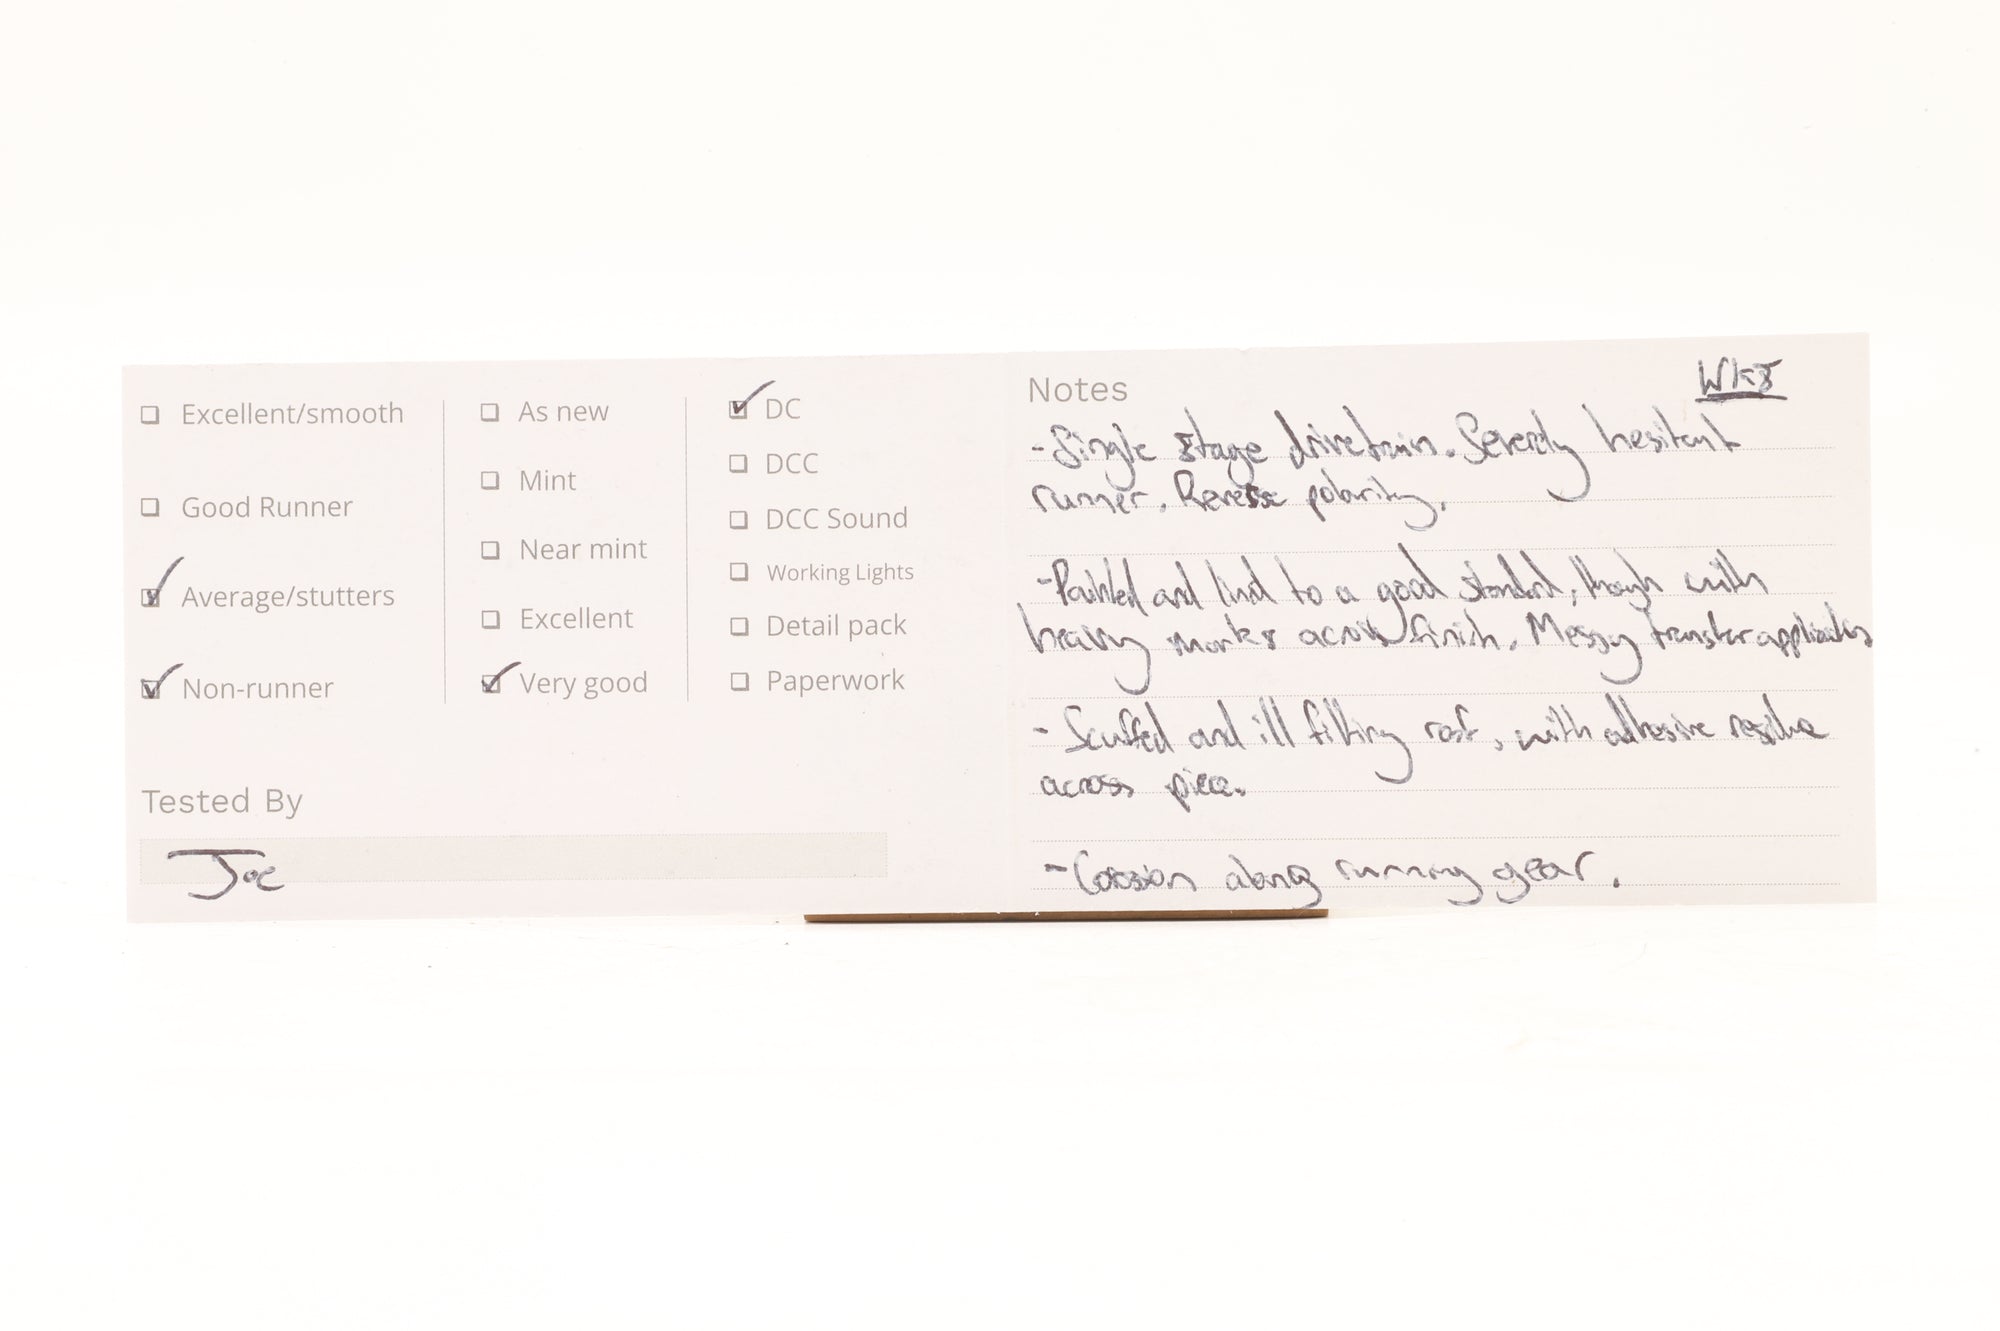 Excellent/smooth
Good Runner
Average/stutters
Non-runner
As new
Mint
Near mint
Excellent
Very good
DC
DCC
DCC Sound
Working Lights
Detail pack
Paperwork
Tested By
Joe
Notes
- Single stage drivetrain. Severely hesitant
runner. Reverse polarity.
- Painted and lined to a good standard, though with
heavy marks across finish. Messy transfer application
- Scuffed and ill fitting roof, with adhesive residue
across piece.
- Corosion along running gear.